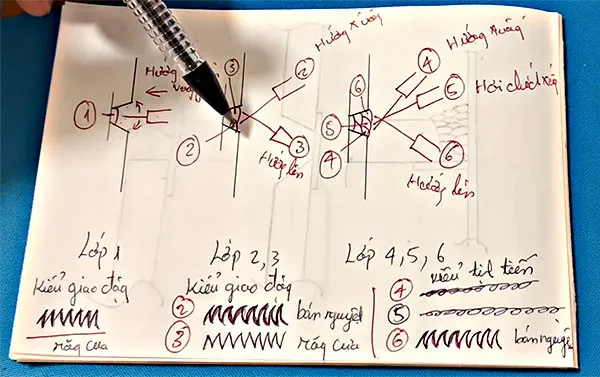 Hướng Xuống
③
②
Hướng
①
②
③
Hướng lên
Hướng Xuống
④
⑥
⑤
Hơi chút xéo
⑤
④
⑥
Hướng lên
Lớp 1
Kiểu giao động
răng cưa
Lớp 2, 3
Kiểu giao động
② bán nguyệt
③ Răng cưa
Lớp 4, 5, 6
Kiểu tịnh tiến
④
⑤
⑥ bán nguyệt